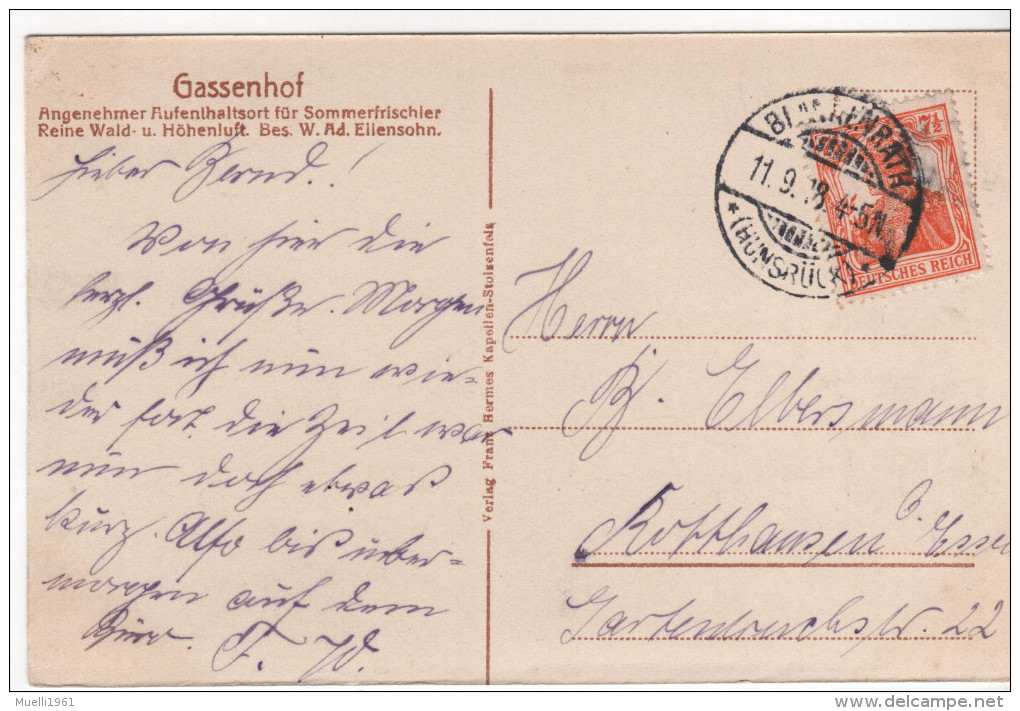 Gassenhof
Angenehmer Aufenthaltsort für Sommerfrischler
Reine Wald- u. Höhenluft. Bes. W. Ad. Ellensohn.
Lieber Bernd!
Von hier die
herzl. Grüße. Morgen
muß ich nun wie=
der fort. die Zeit war
nun doch etwas
kurz. Also bis über=
morgen auf dem
Büro. F. W.
Verlag Franz Hermes Kapellen-Stolzenfels
BLANKENRATH
11. 9. 18. 4-5N.
* (HUNSRÜCK) *
7½
DEUTSCHES REICH
Herrn
B. Elbersmann
Rotthausen b. Essen
Gartenbruchstr. 22
Muelli1961
delcampe.net